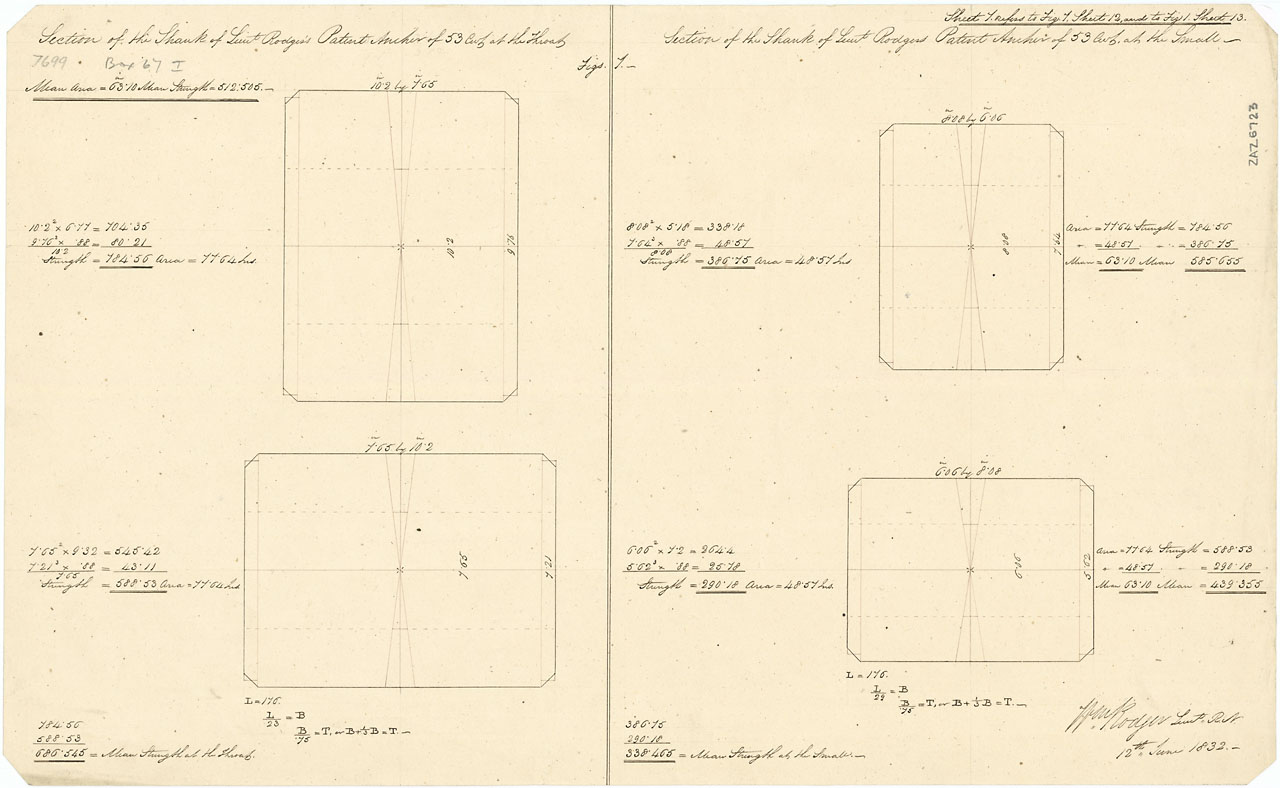 Sheet 7. refers to Fig 7. Sheet 12, and to Fig 1. Sheet 13.
Section of the Shank of Lieut Rodgers Patent Anchor of 53 Cwt, at the Throat
Section of the Shank of Lieut Rodgers Patent Anchor of 53 Cwt, at the Small
7699 . Box 67 I
Figs. 7.
Mean Area = 63.10 Mean Strength = 512.505.
10.2 by 7.65
8.08 by 6.06
ZAZ6723
10.2² × 6.77 = 704.35
9.76³ × .88 = 80.21
10.2
Strength = 784.56 Area = 77.64 Ins
10.2
9.76
8.08² × 5.18 = 338.18
7.64³ × .88 = 48.57
8.08
Strength = 386.75 Area = 48.57 Ins
8.08
7.64
Area = 77.64 Strength = 784.56
" = 48.57 " = 386.75
Mean = 63.10 Mean 585.655
7.65 by 10.2
6.06 by 8.08
7.65² × 9.32 = 545.42
7.21³ × .88 = 43.11
7.65
Strength = 588.53 Area = 77.64 Ins
7.65
7.21
6.06² × 7.2 = 264.4
5.62³ × .88 = 25.78
Strength = 290.18 Area = 48.57 Ins
6.06
5.62
Area = 77.64 Strength = 588.53
" = 48.57 " = 290.18
Mean 63.10 Mean = 439.355
L = 176.
L/23 = B
B/.75 = T, or B + ⅓ B = T.
L = 176.
L/29 = B
B/.75 = T, or B + ⅓ B = T.
784.56
588.53
686.545 = Mean Strength at the Throat.
386.75
290.18
338.465 = Mean Strength at the Small.
Wm Rodger Lieut. R.N
12th June 1832.